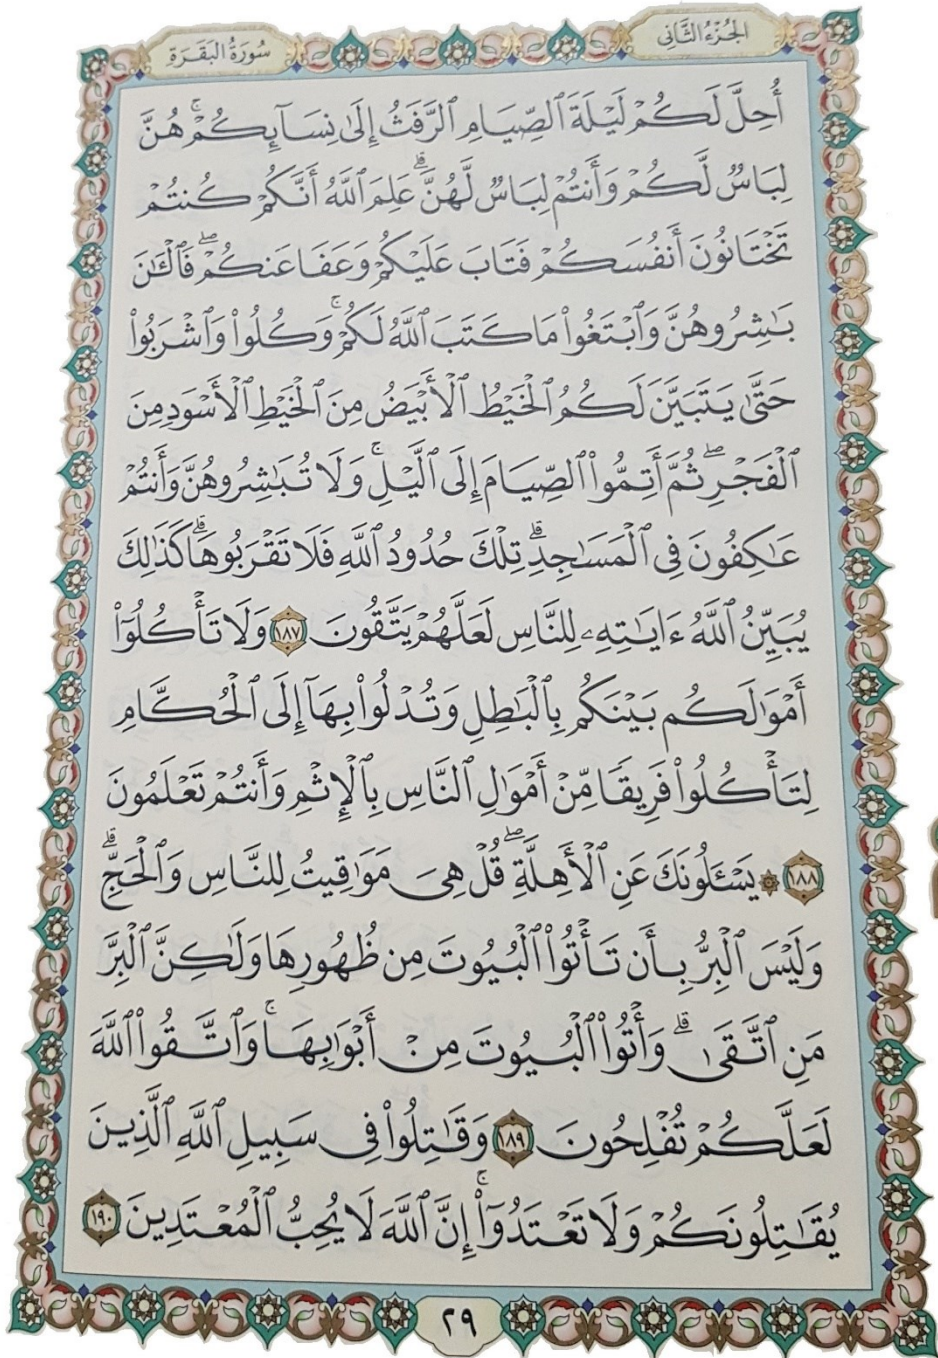 الجُزْءُ الثَّانِى
سُورَةُ البَقَرَةِ
أُحِلَّ لَكُمْ لَيْلَةَ ٱلصِّيَامِ ٱلرَّفَثُ إِلَىٰ نِسَآئِكُمْ ۚ هُنَّ
لِبَاسٌ لَّكُمْ وَأَنتُمْ لِبَاسٌ لَّهُنَّ ۗ عَلِمَ ٱللَّهُ أَنَّكُمْ كُنتُمْ
تَخْتَانُونَ أَنفُسَكُمْ فَتَابَ عَلَيْكُمْ وَعَفَا عَنكُمْ ۖ فَٱلْـَٰٔنَ
بَـٰشِرُوهُنَّ وَٱبْتَغُوا۟ مَا كَتَبَ ٱللَّهُ لَكُمْ ۚ وَكُلُوا۟ وَٱشْرَبُوا۟
حَتَّىٰ يَتَبَيَّنَ لَكُمُ ٱلْخَيْطُ ٱلْأَبْيَضُ مِنَ ٱلْخَيْطِ ٱلْأَسْوَدِ مِنَ
ٱلْفَجْرِ ۖ ثُمَّ أَتِمُّوا۟ ٱلصِّيَامَ إِلَى ٱلَّيْلِ ۚ وَلَا تُبَـٰشِرُوهُنَّ وَأَنتُمْ
عَـٰكِفُونَ فِى ٱلْمَسَـٰجِدِ ۗ تِلْكَ حُدُودُ ٱللَّهِ فَلَا تَقْرَبُوهَا ۗ كَذَٰلِكَ
يُبَيِّنُ ٱللَّهُ ءَايَـٰتِهِۦ لِلنَّاسِ لَعَلَّهُمْ يَتَّقُونَ ١٨٧ وَلَا تَأْكُلُوٓا۟
أَمْوَٰلَكُم بَيْنَكُم بِٱلْبَـٰطِلِ وَتُدْلُوا۟ بِهَآ إِلَى ٱلْحُكَّامِ
لِتَأْكُلُوا۟ فَرِيقًا مِّنْ أَمْوَٰلِ ٱلنَّاسِ بِٱلْإِثْمِ وَأَنتُمْ تَعْلَمُونَ
١٨٨ ۞ يَسْـَٔلُونَكَ عَنِ ٱلْأَهِلَّةِ ۖ قُلْ هِىَ مَوَٰقِيتُ لِلنَّاسِ وَٱلْحَجِّ ۗ
وَلَيْسَ ٱلْبِرُّ بِأَن تَأْتُوا۟ ٱلْبُيُوتَ مِن ظُهُورِهَا وَلَـٰكِنَّ ٱلْبِرَّ
مَنِ ٱتَّقَىٰ ۗ وَأْتُوا۟ ٱلْبُيُوتَ مِنْ أَبْوَٰبِهَا ۚ وَٱتَّقُوا۟ ٱللَّهَ
لَعَلَّكُمْ تُفْلِحُونَ ١٨٩ وَقَـٰتِلُوا۟ فِى سَبِيلِ ٱللَّهِ ٱلَّذِينَ
يُقَـٰتِلُونَكُمْ وَلَا تَعْتَدُوٓا۟ ۚ إِنَّ ٱللَّهَ لَا يُحِبُّ ٱلْمُعْتَدِينَ ١٩٠
٢٩